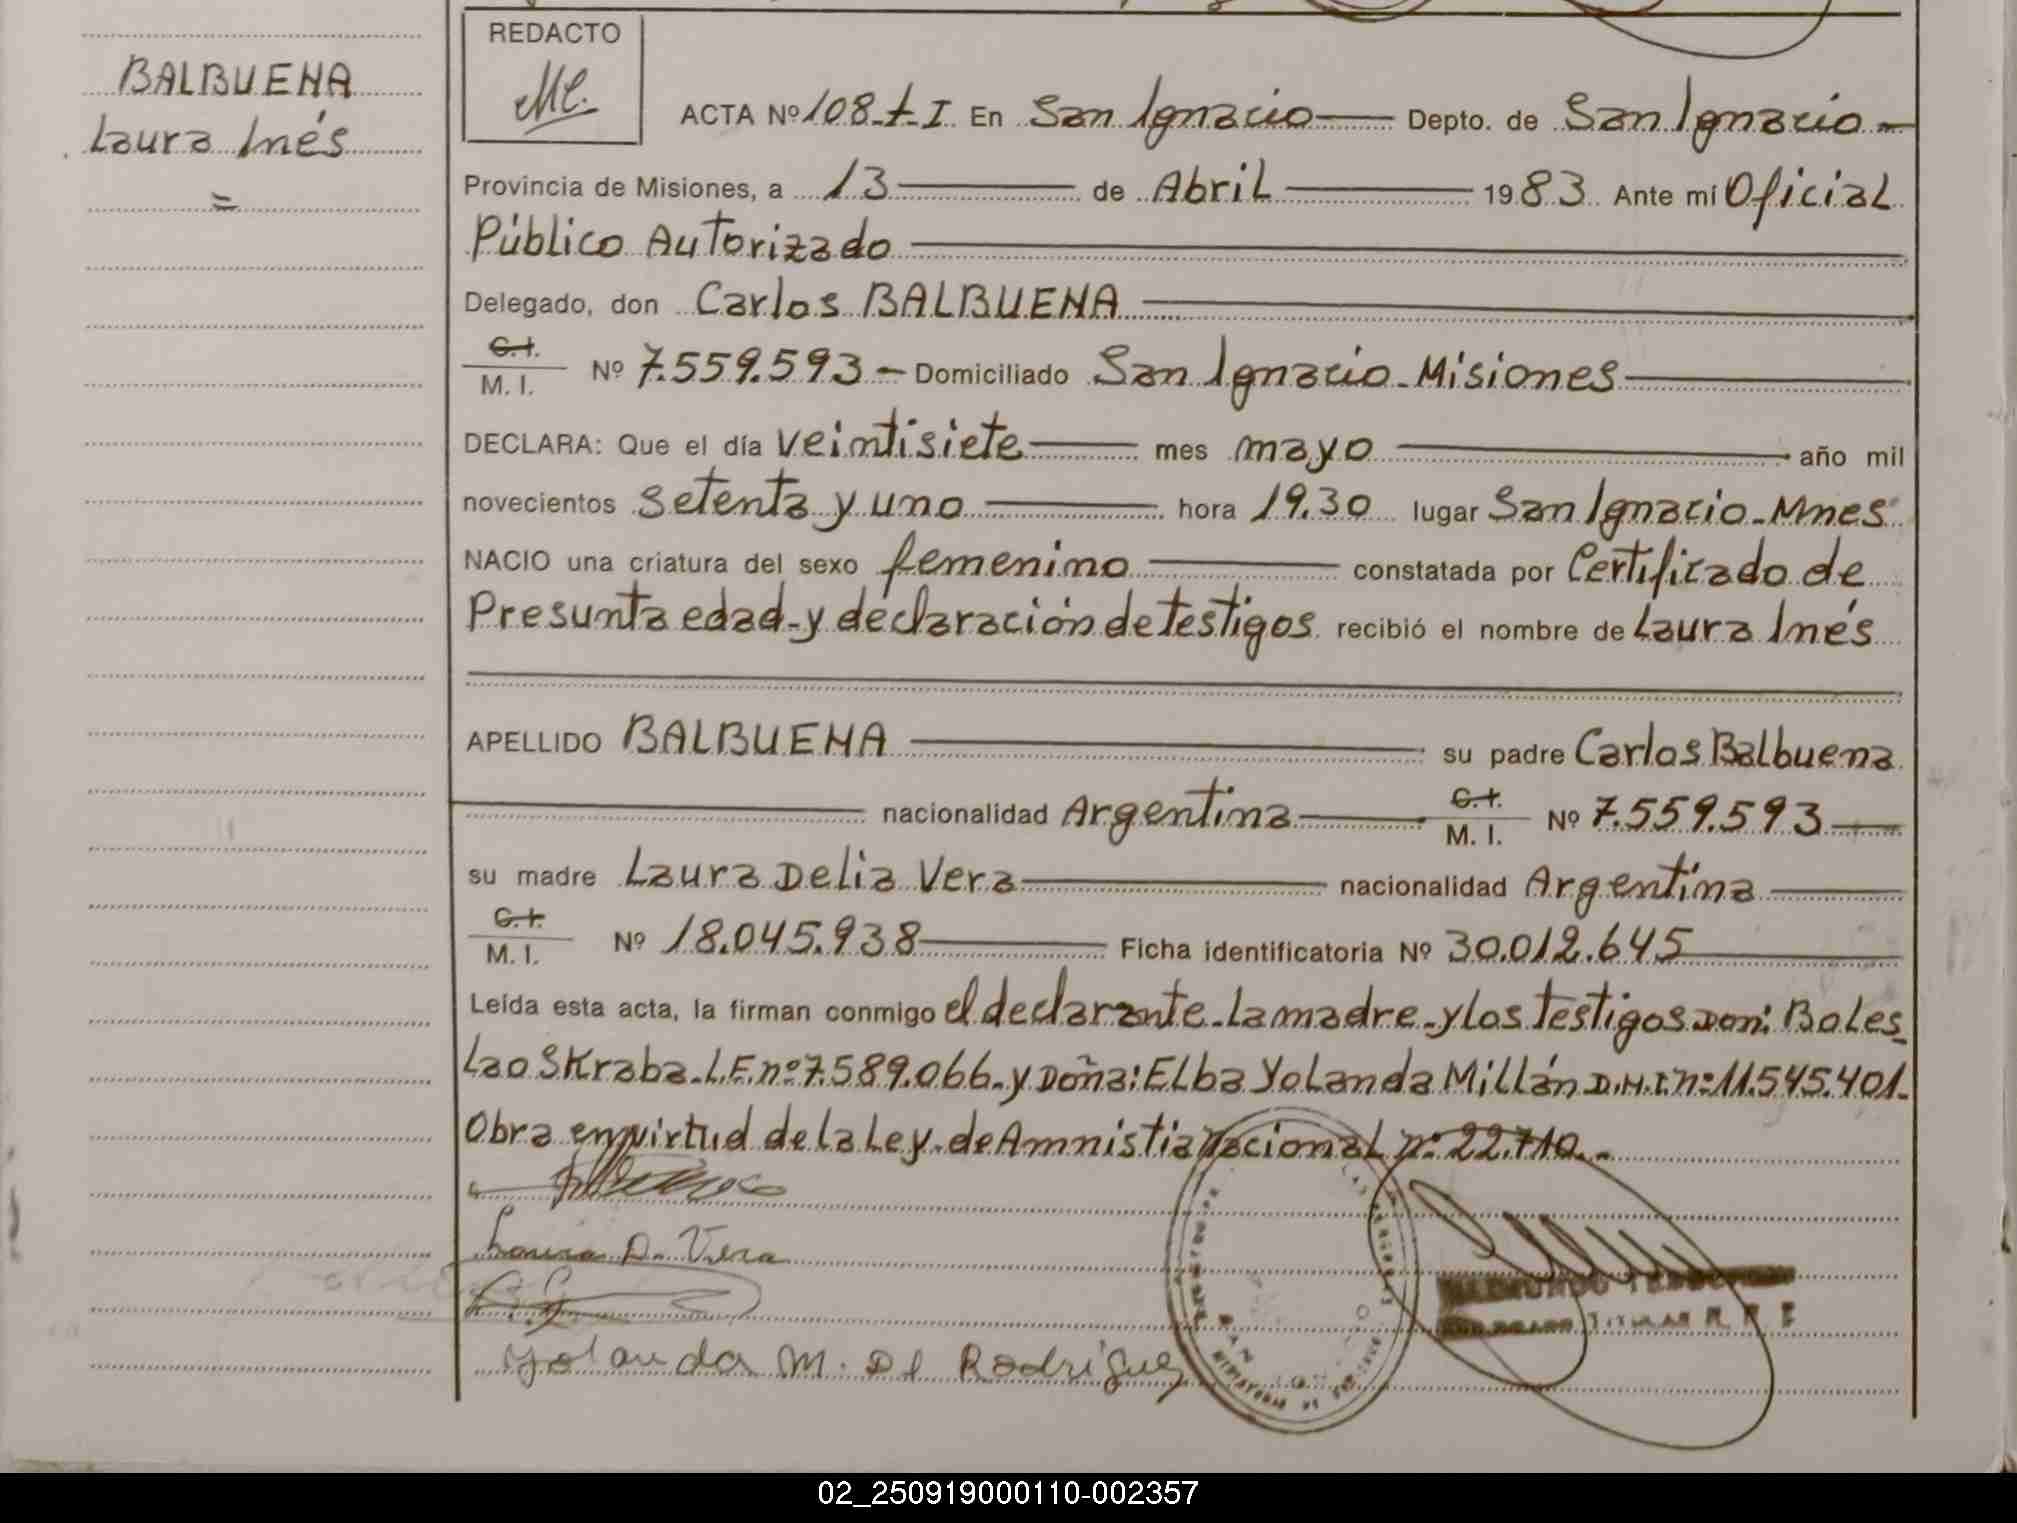 BALBUENA
Laura Inés
=
REDACTO
ACTA Nº 108-t-I En San Ignacio Depto. de San Ignacio-
Provincia de Misiones, a 13 de Abril 1983 Ante mí Oficial
Público Autorizado
Delegado, don Carlos BALBUENA
C.I. / M. I. Nº 7.559.593 - Domiciliado San Ignacio-Misiones
DECLARA: Que el día veintisiete mes mayo año mil
novecientos setenta y uno hora 19.30 lugar San Ignacio-Mnes
NACIO una criatura del sexo femenino constatada por Certificado de
Presunta edad-y declaración de testigos recibió el nombre de Laura Inés
APELLIDO BALBUENA su padre Carlos Balbuena
nacionalidad Argentina C.I. / M. I. Nº 7.559.593
su madre Laura Delia Vera nacionalidad Argentina
C.I. / M. I. Nº 18.045.938 Ficha identificatoria Nº 30.012.645
Leída esta acta, la firman conmigo el declarante-la madre-y los testigos Don: Boles_
lao Skraba-L.E.nº7.589.066-y Doña: Elba Yolanda Millán D.N.I.nº:11.545.401.
Obra en virtud de la Ley-de Amnistia nacional nº 22.710.-
Laura D. Vera
Yolanda M. De Rodríguez
TITULAR
02_250919000110-002357